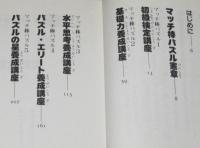 はじめに
マッチ棒パズル憲章
マッチ棒パズル1
初級検定講座
マッチ棒パズル2
基礎力養成講座
マッチ棒パズル3
水平思考養成講座
115
マッチ棒パズル4
パズル・エリート養成講座
161
パズルの星養成講座